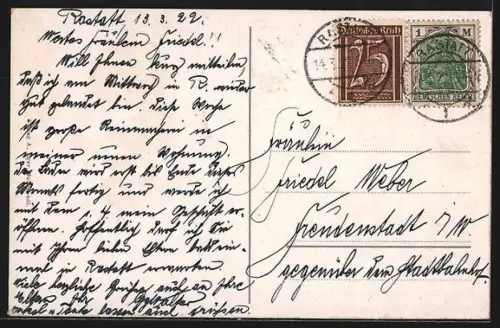 Rastatt 13.3.22.
Wertes Fräulein Friedel!!
Will Ihnen kurz mitteilen
daß ich am Mittwoch in R. wieder
gut gelandet bin. Diese Woche
ist große Reinemacherei in
meiner neuen Wohnung.
Der Laden wird erst bis Ende dieses
Monats fertig und werde ich
mit dem 1.4 mein Geschäft er-
öffnen. Hoffentlich darf ich Sie
mit Ihren lieben Eltern bald ein-
mal in Rastatt erwarten.
Viele herzliche Grüße auch an Ihre
Eltern Ihr
Onkel u. Tante lassen auch grüßen.
Deutsches Reich
25
1 M
DEUTSCHES REICH
RASTATT
14.3.
Fräulein
Friedel Weber
Freudenstadt i/W.
gegenüber dem Stadtbahnhof.